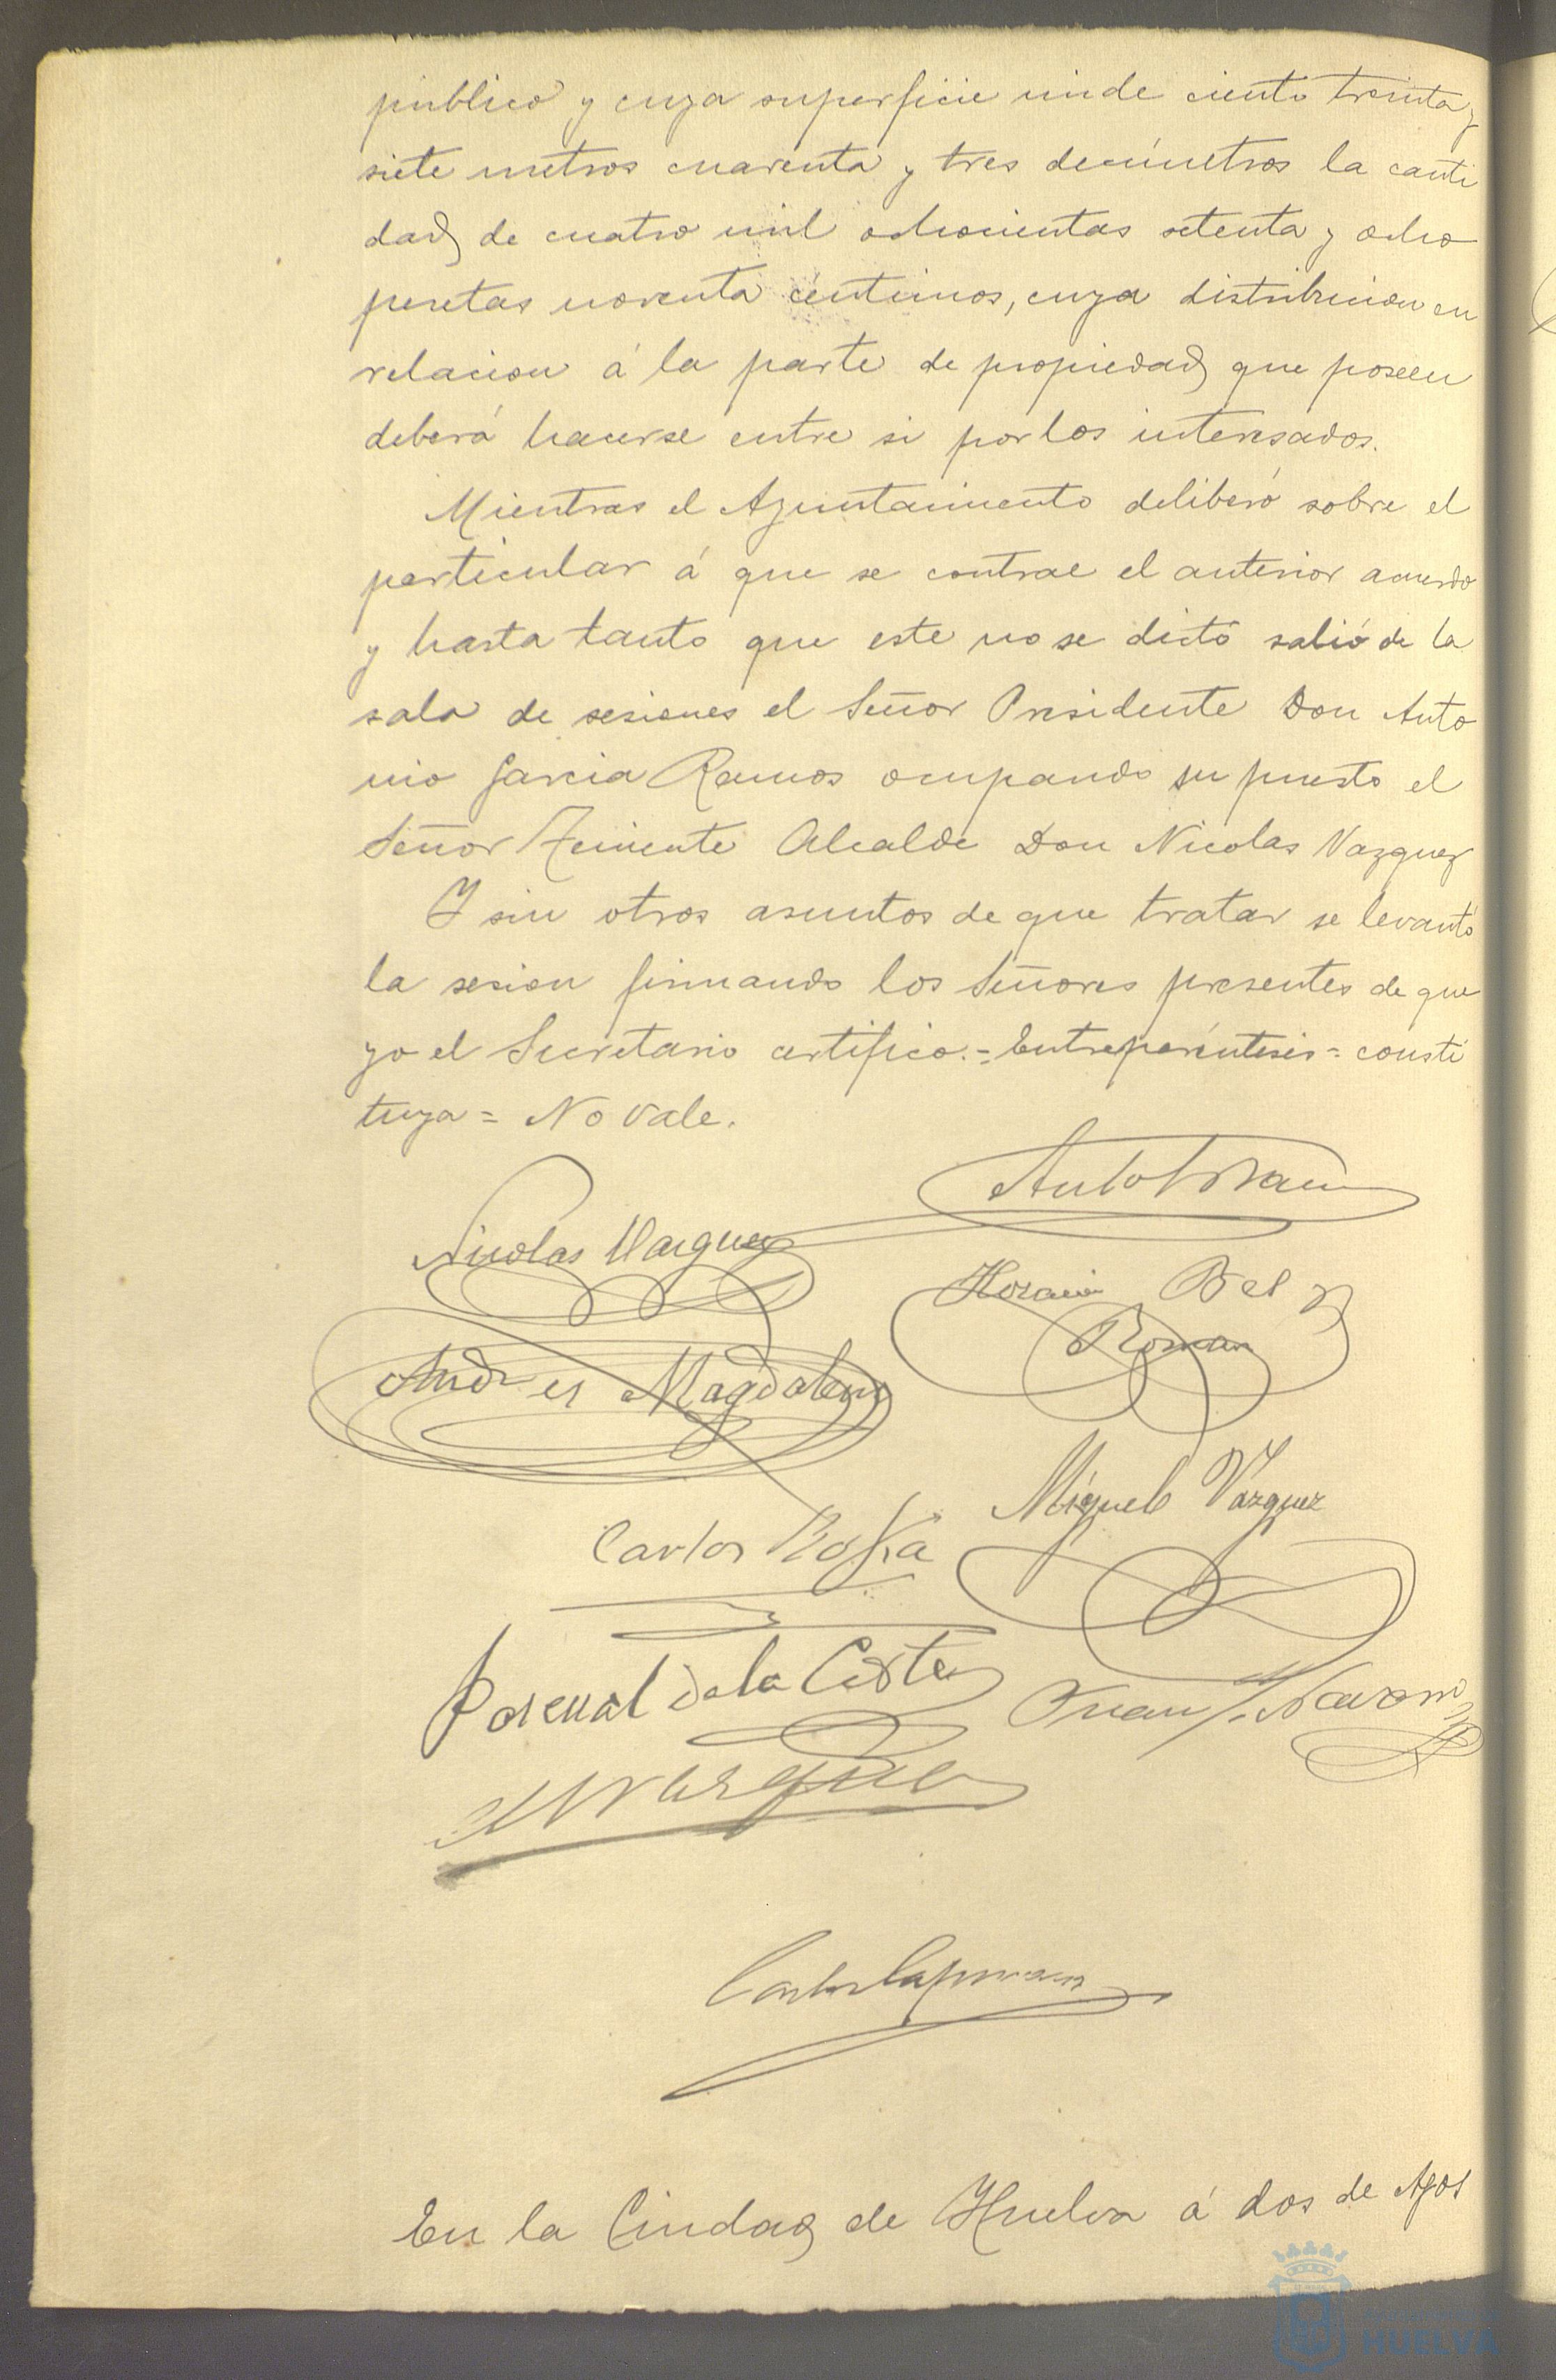 publico y cuya superficie mide ciento treinta y
siete metros cuarenta y tres decimetros la canti
dad de cuatro mil ochocientas setenta y ocho
pesetas noventa centimos, cuya distribucion en
relacion á la parte de propiedad que poseen
deberá hacerse entre si por los interesados.
Mientras el Ayuntamiento deliberó sobre el
particular á que se contrae el anterior acuerdo
y hasta tanto que este no se dictó salió de la
sala de sesiones el Señor Presidente Don Anto
nio Garcia Ramos ocupando su puesto el
Señor Teniente Alcalde Don Nicolas Vazquez
Y sin otros asuntos de que tratar se levantó
la sesion firmando los Señores presentes de que
yo el Secretario certifico.=Entreparéntesis=consti
tuya=No vale.
Nicolas Vazquez
Horacio Bel
Roman
Andres Magdalena
Miguel Vázquez
Carlos
Pascual de la Corte
Juan
Vazquez
En la Ciudad de Huelva á dos de Agos
HUELVA